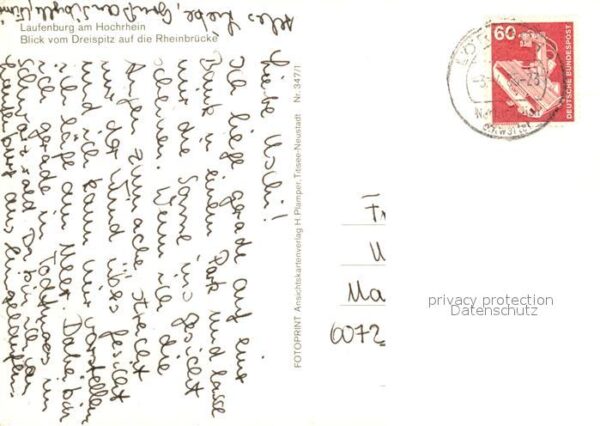 Laufenburg am Hochrhein
Blick vom Dreispitz auf die Rheinbrücke
Alles Liebe, Gruß an
Liebe Uschi!
Ich liege gerade auf einer
Bank in einem Park und lasse
mir die Sonne ins Gesicht
scheinen. Wenn ich die
Augen zumache streicht
mir der Wind übers Gesicht
und ich kann mir vorstellen
ich läge am Meer. Dabei bin
ich gerade in Todtmoos im
Schwarzwald.
FOTOPRINT Ansichtskartenverlag H Plamper, Titisee-Neustadt Nr. 347/1
60
DEUTSCHE BUNDESPOST
F
U
Ma
6072
privacy protection
Datenschutz